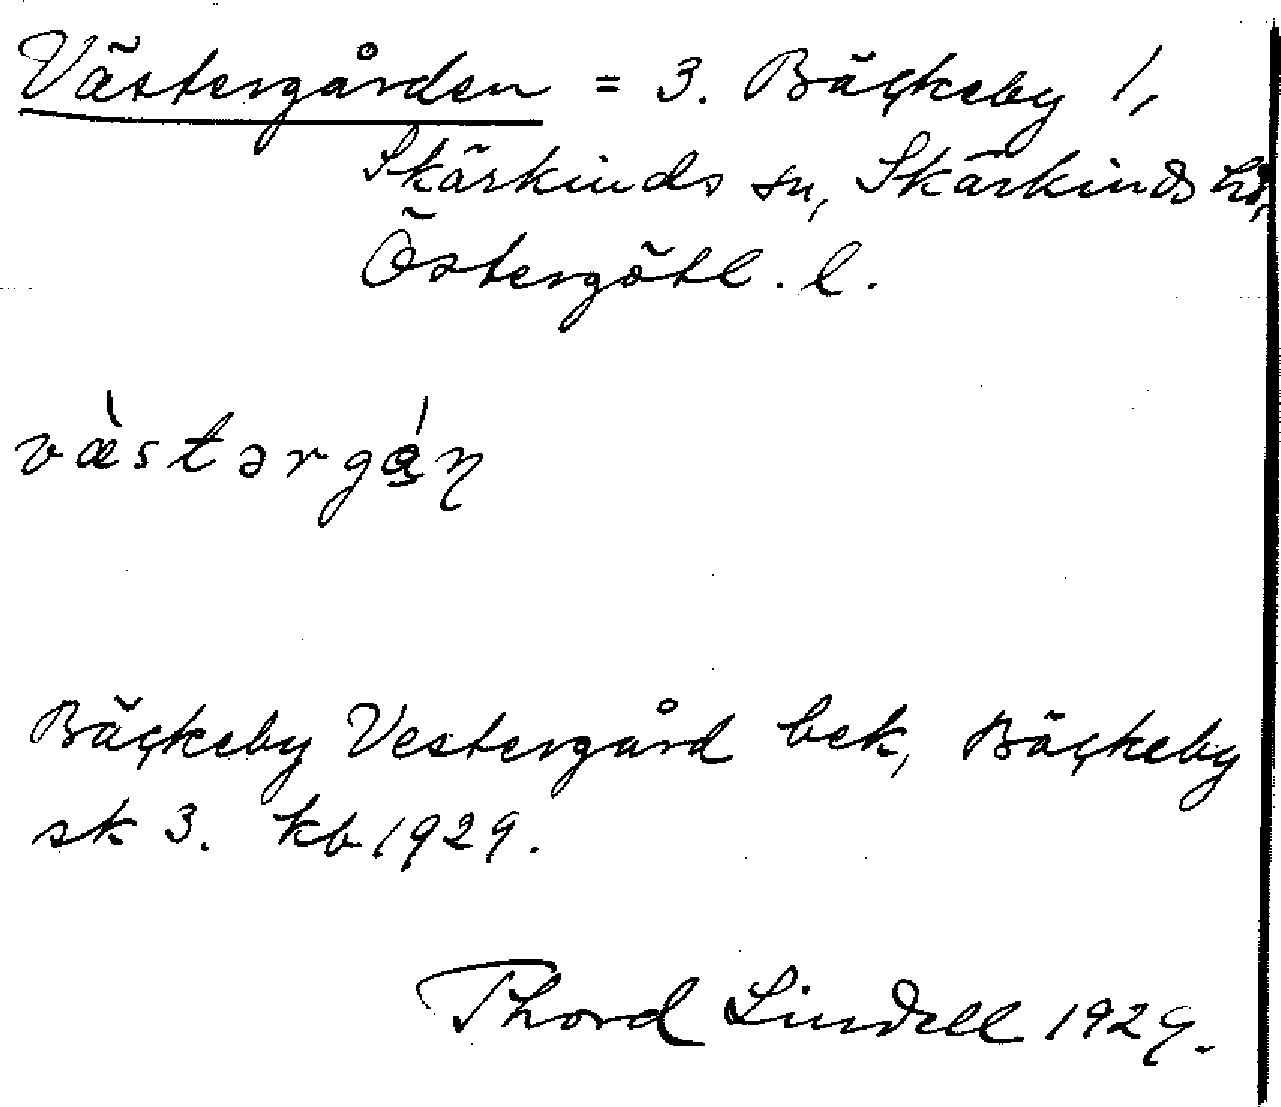 Västergården = 3. Bäckeby 1,
Skärkinds sn, Skärkinds hd,
Östergötl. l.
væ̀stərgá̱η
Bäckeby Vestergård bek, Bäckeby
sk 3. kb 1929.
Thord Lindell 1929.